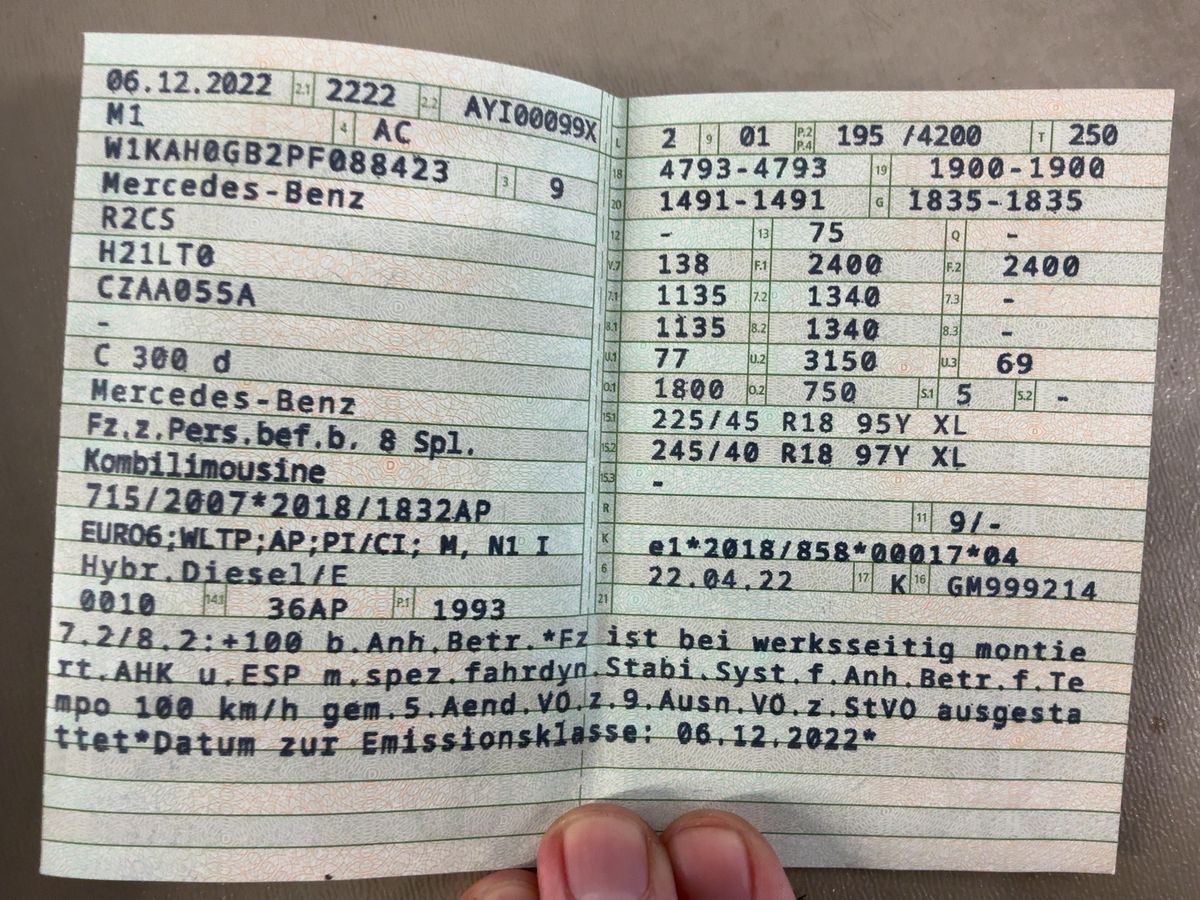 06.12.2022 2.1 2222 2.2 AYI00099X
M1 4 AC
W1KAH0GB2PF088423 3 9
Mercedes-Benz
R2CS
H21LT0
CZAA055A
-
C 300 d
Mercedes-Benz
Fz.z.Pers.bef.b. 8 Spl.
Kombilimousine
715/2007*2018/1832AP
EURO6;WLTP;AP;PI/CI; M, N1 I
Hybr.Diesel/E
0010 14.1 36AP P.1 1993
L 2 9 01 P.2 P.4 195 /4200 T 250
18 4793-4793 19 1900-1900
20 1491-1491 G 1835-1835
12 - 13 75 Q -
V.7 138 F.1 2400 F.2 2400
7.1 1135 7.2 1340 7.3 -
8.1 1135 8.2 1340 8.3 -
U.1 77 U.2 3150 U.3 69
O.1 1800 O.2 750 S.1 5 S.2 -
15.1 225/45 R18 95Y XL
15.2 245/40 R18 97Y XL
15.3 -
R 11 9/-
K e1*2018/858*00017*04
6 22.04.22 17 K 16 GM999214
21
7.2/8.2:+100 b.Anh.Betr.*Fz ist bei werksseitig montie
rt.AHK u.ESP m.spez.fahrdyn.Stabi.Syst.f.Anh.Betr.f.Te
mpo 100 km/h gem.5.Aend.VO.z.9.Ausn.VO.z.StVO ausgesta
ttet*Datum zur Emissionsklasse: 06.12.2022*